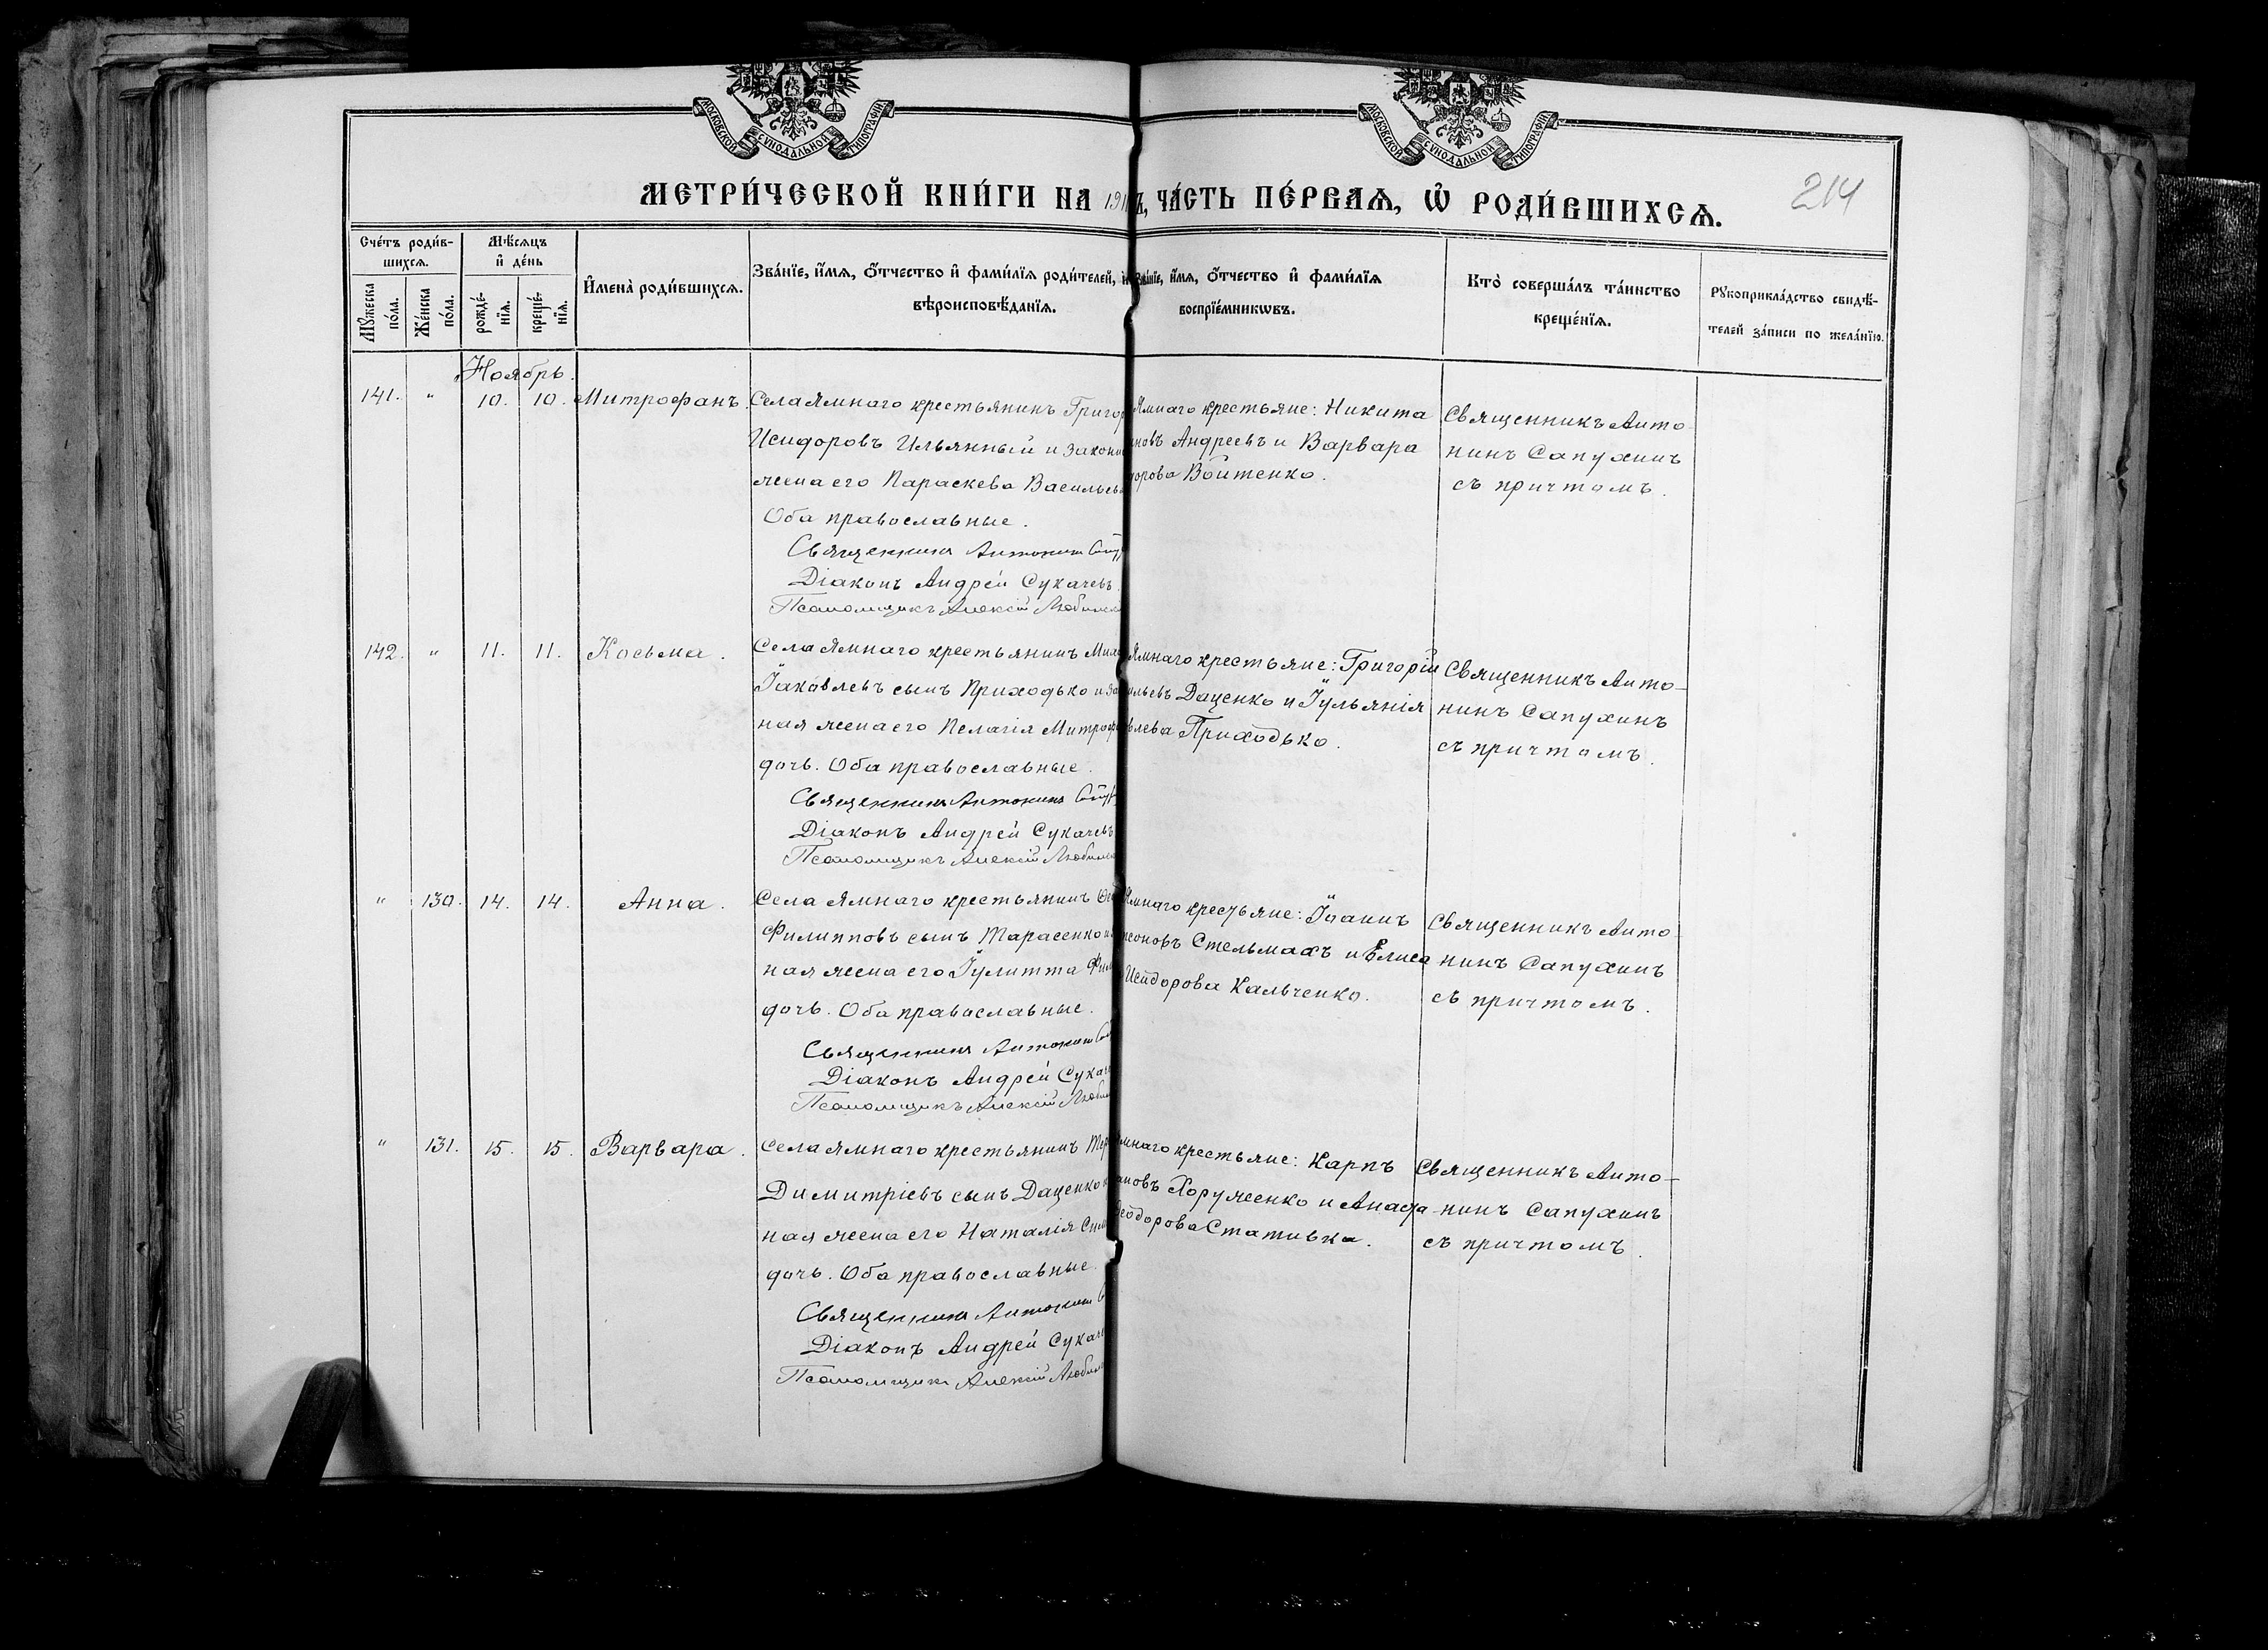 МОСКОВСКОЙ СѴНОДАЛЬНОЙ ТИПОГРАФІИ
МОСКОВСКОЙ СѴНОДАЛЬНОЙ ТИПОГРАФІИ
МЕТРИ́ЧЕСКОЙ КНИ́ГИ НА 191 Ъ, ЧА́СТЬ ПЕ́РВАѦ, Ѡ РОДИ́ВШИХСѦ.
214
Сче́тъ роди́в-
шихсѧ.
Мѣ́сѧцъ
и҆ де́нь
Мꙋ́жеска по́ла.
Же́нска по́ла.
рожде́-нїѧ.
креще́-нїѧ.
И҆мена̀ роди́вшихсѧ.
Зва́нїе, и҆́мѧ, ѻ҆́тчество и҆ фами́лїѧ роди́телей,
вѣроисповѣ́данїѧ.
Зва́нїе, и҆́мѧ, ѻ҆́тчество и҆ фами́лїѧ
воспрїе́мникѡвъ.
Кто̀ соверша́лъ та́инство
креще́нїѧ.
Рꙋкоприкла́дство свидѣ́-
телей за́писи по жела́нїю.
Ноябрь.
141. " 10. 10. Митрофанъ. Села Ямнаго крестьянинъ Григор
Исидоровъ Ильянный и закон
жена его Параскева Васильев
Оба православные.
Священникъ Антонинъ
Діаконъ Андрей Сукачевъ.
Псаломщикъ Алексій
Ямнаго крестьяне: Никита
новъ Андреевъ и Варвара
дорова Войтенко.
Священникъ Анто-
нинъ Сапухинъ
съ причтомъ.
142. " 11. 11. Косьма. Села Ямнаго крестьянинъ Миха
Іаковлевъ сынъ Приходько и за
ная жена его Пелагія Митроф
дочь. Оба православные.
Священникъ Антонинъ
Діаконъ Андрей Сукачевъ
Псаломщикъ Алексій
Ямнаго крестьяне: Григорій
ильевъ Даценко и Іульянія
влева Приходько.
Священникъ Анто-
нинъ Сапухинъ
съ причтомъ.
" 130. 14. 14. Анна. Села Ямнаго крестьянинъ
Филипповъ сынъ Тарасенко и
ная жена его Іулитта Фил
дочь. Оба православные.
Священникъ Антонинъ
Діаконъ Андрей Сукач
Псаломщикъ Алексій
Ямнаго крестьяне: Іоаннъ
Стельмахъ и Елиса
Исидорова Кальченко.
Священникъ Анто-
нинъ Сапухинъ
съ причтомъ.
" 131. 15. 15. Варвара. Села Ямнаго крестьянинъ
Димитріевъ сынъ Даценко
ная жена его Наталія
дочь. Оба православные.
Священникъ Антонинъ
Діаконъ Андрей Сукач
Псаломщикъ Алексій
мнаго крестьяне: Карпъ
ановъ Хоруженко и Анаста
Ѳеодорова Стативка.
Священникъ Анто-
нинъ Сапухинъ
съ причтомъ.